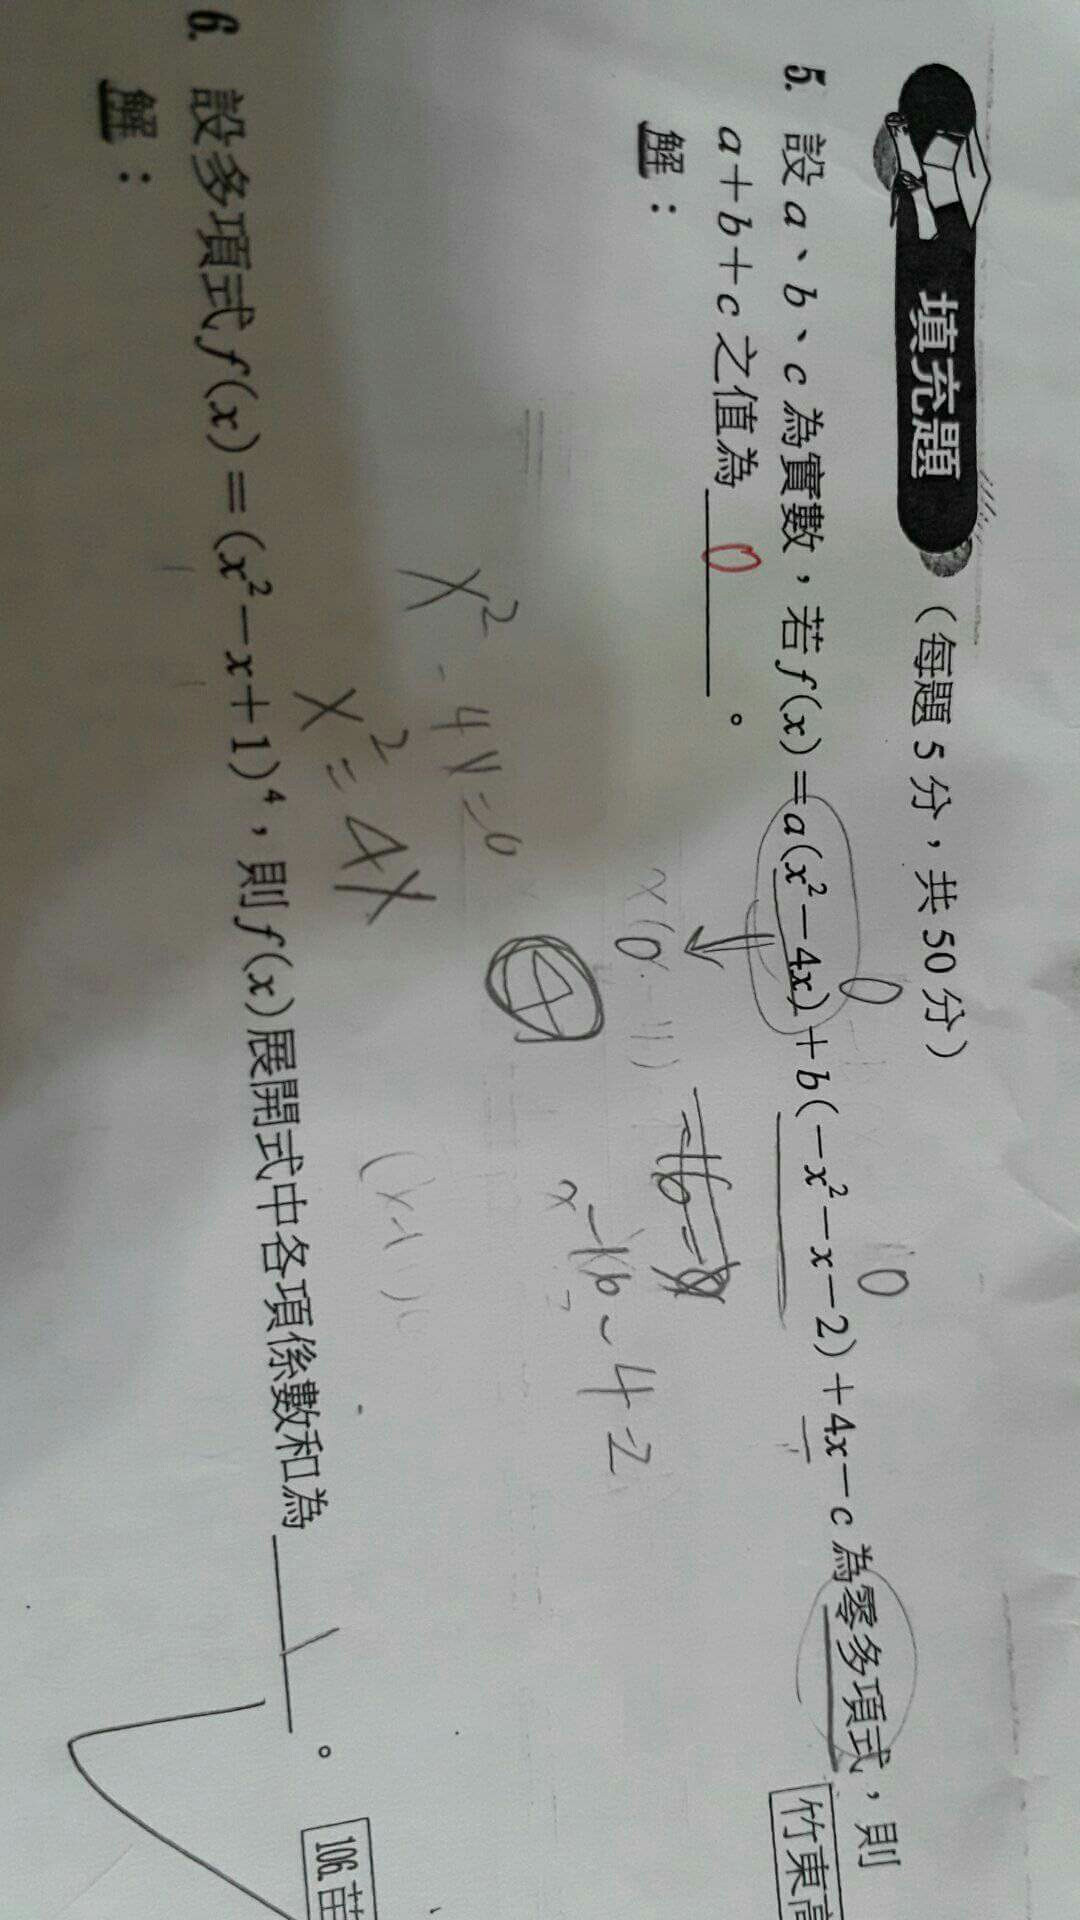 填充題 (每題 5 分，共 50 分)
5. 設 a、b、c 為實數，若 f(x)=a(x²-4x)+b(-x²-x-2)+4x-c 為零多項式，則
a+b+c 之值為 0 。
竹東高
解：
0
0
-16=
x-16-4-2
x²-4x=0
x²=4x
(x-1)
6. 設多項式 f(x)=(x²-x+1)⁴，則 f(x) 展開式中各項係數和為 1 。
106.苗
解：